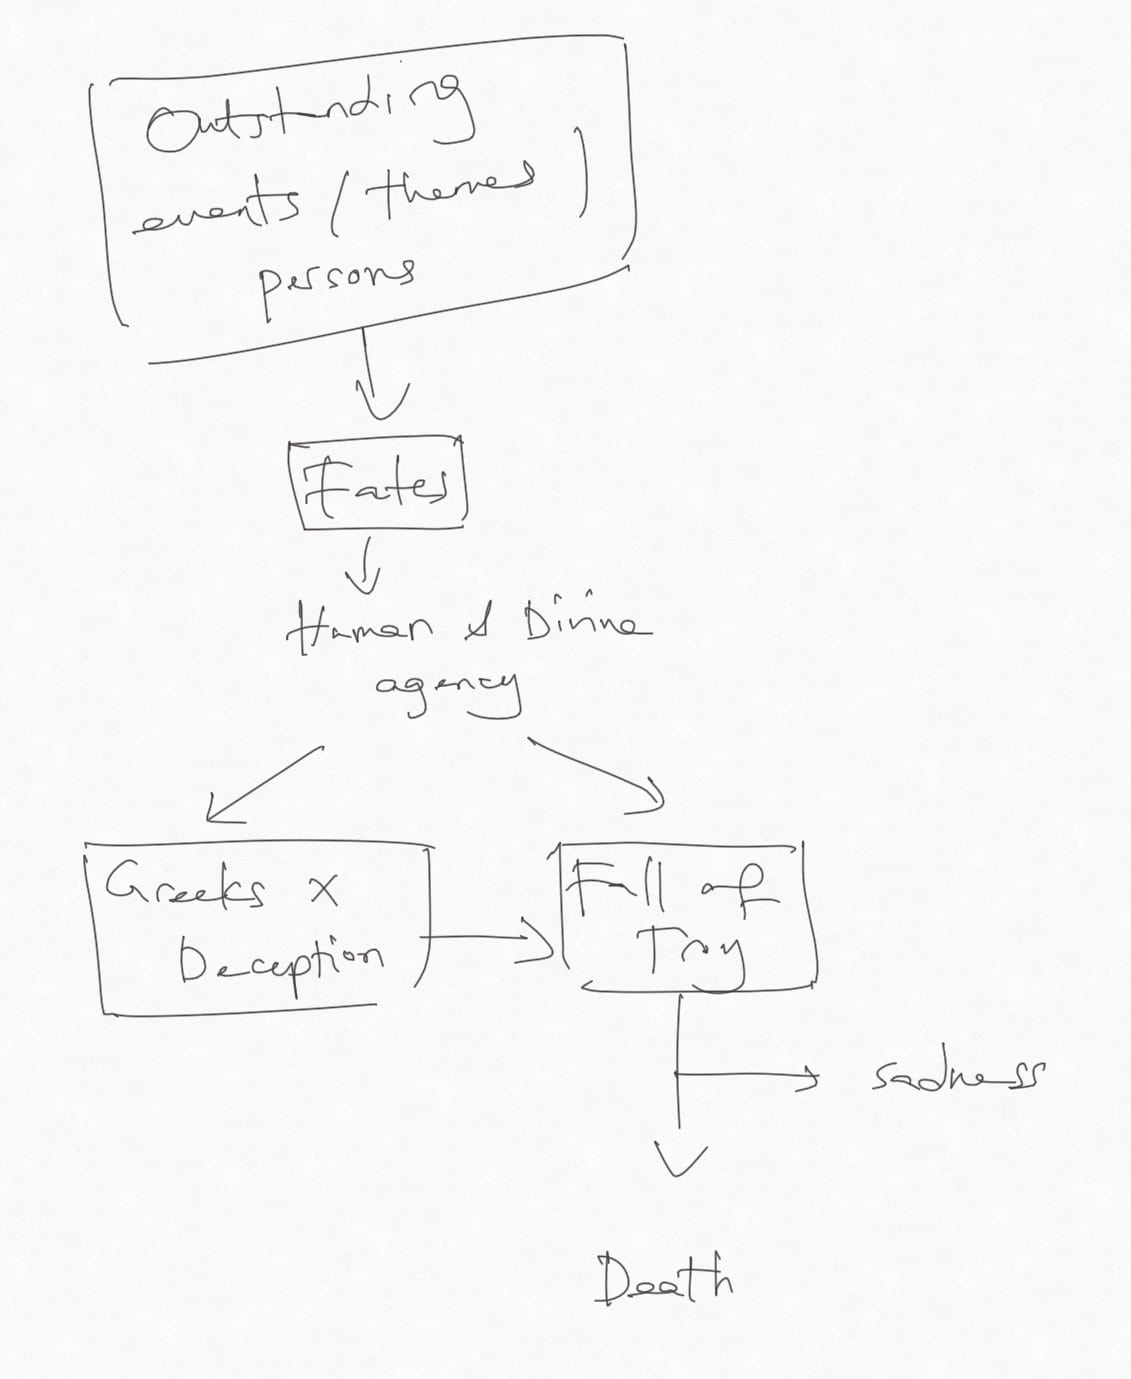 Outstanding
events / themes
persons
Fates
Human & Divine
agency
Greeks x
Deception
Fall of
Troy
sadness
Death